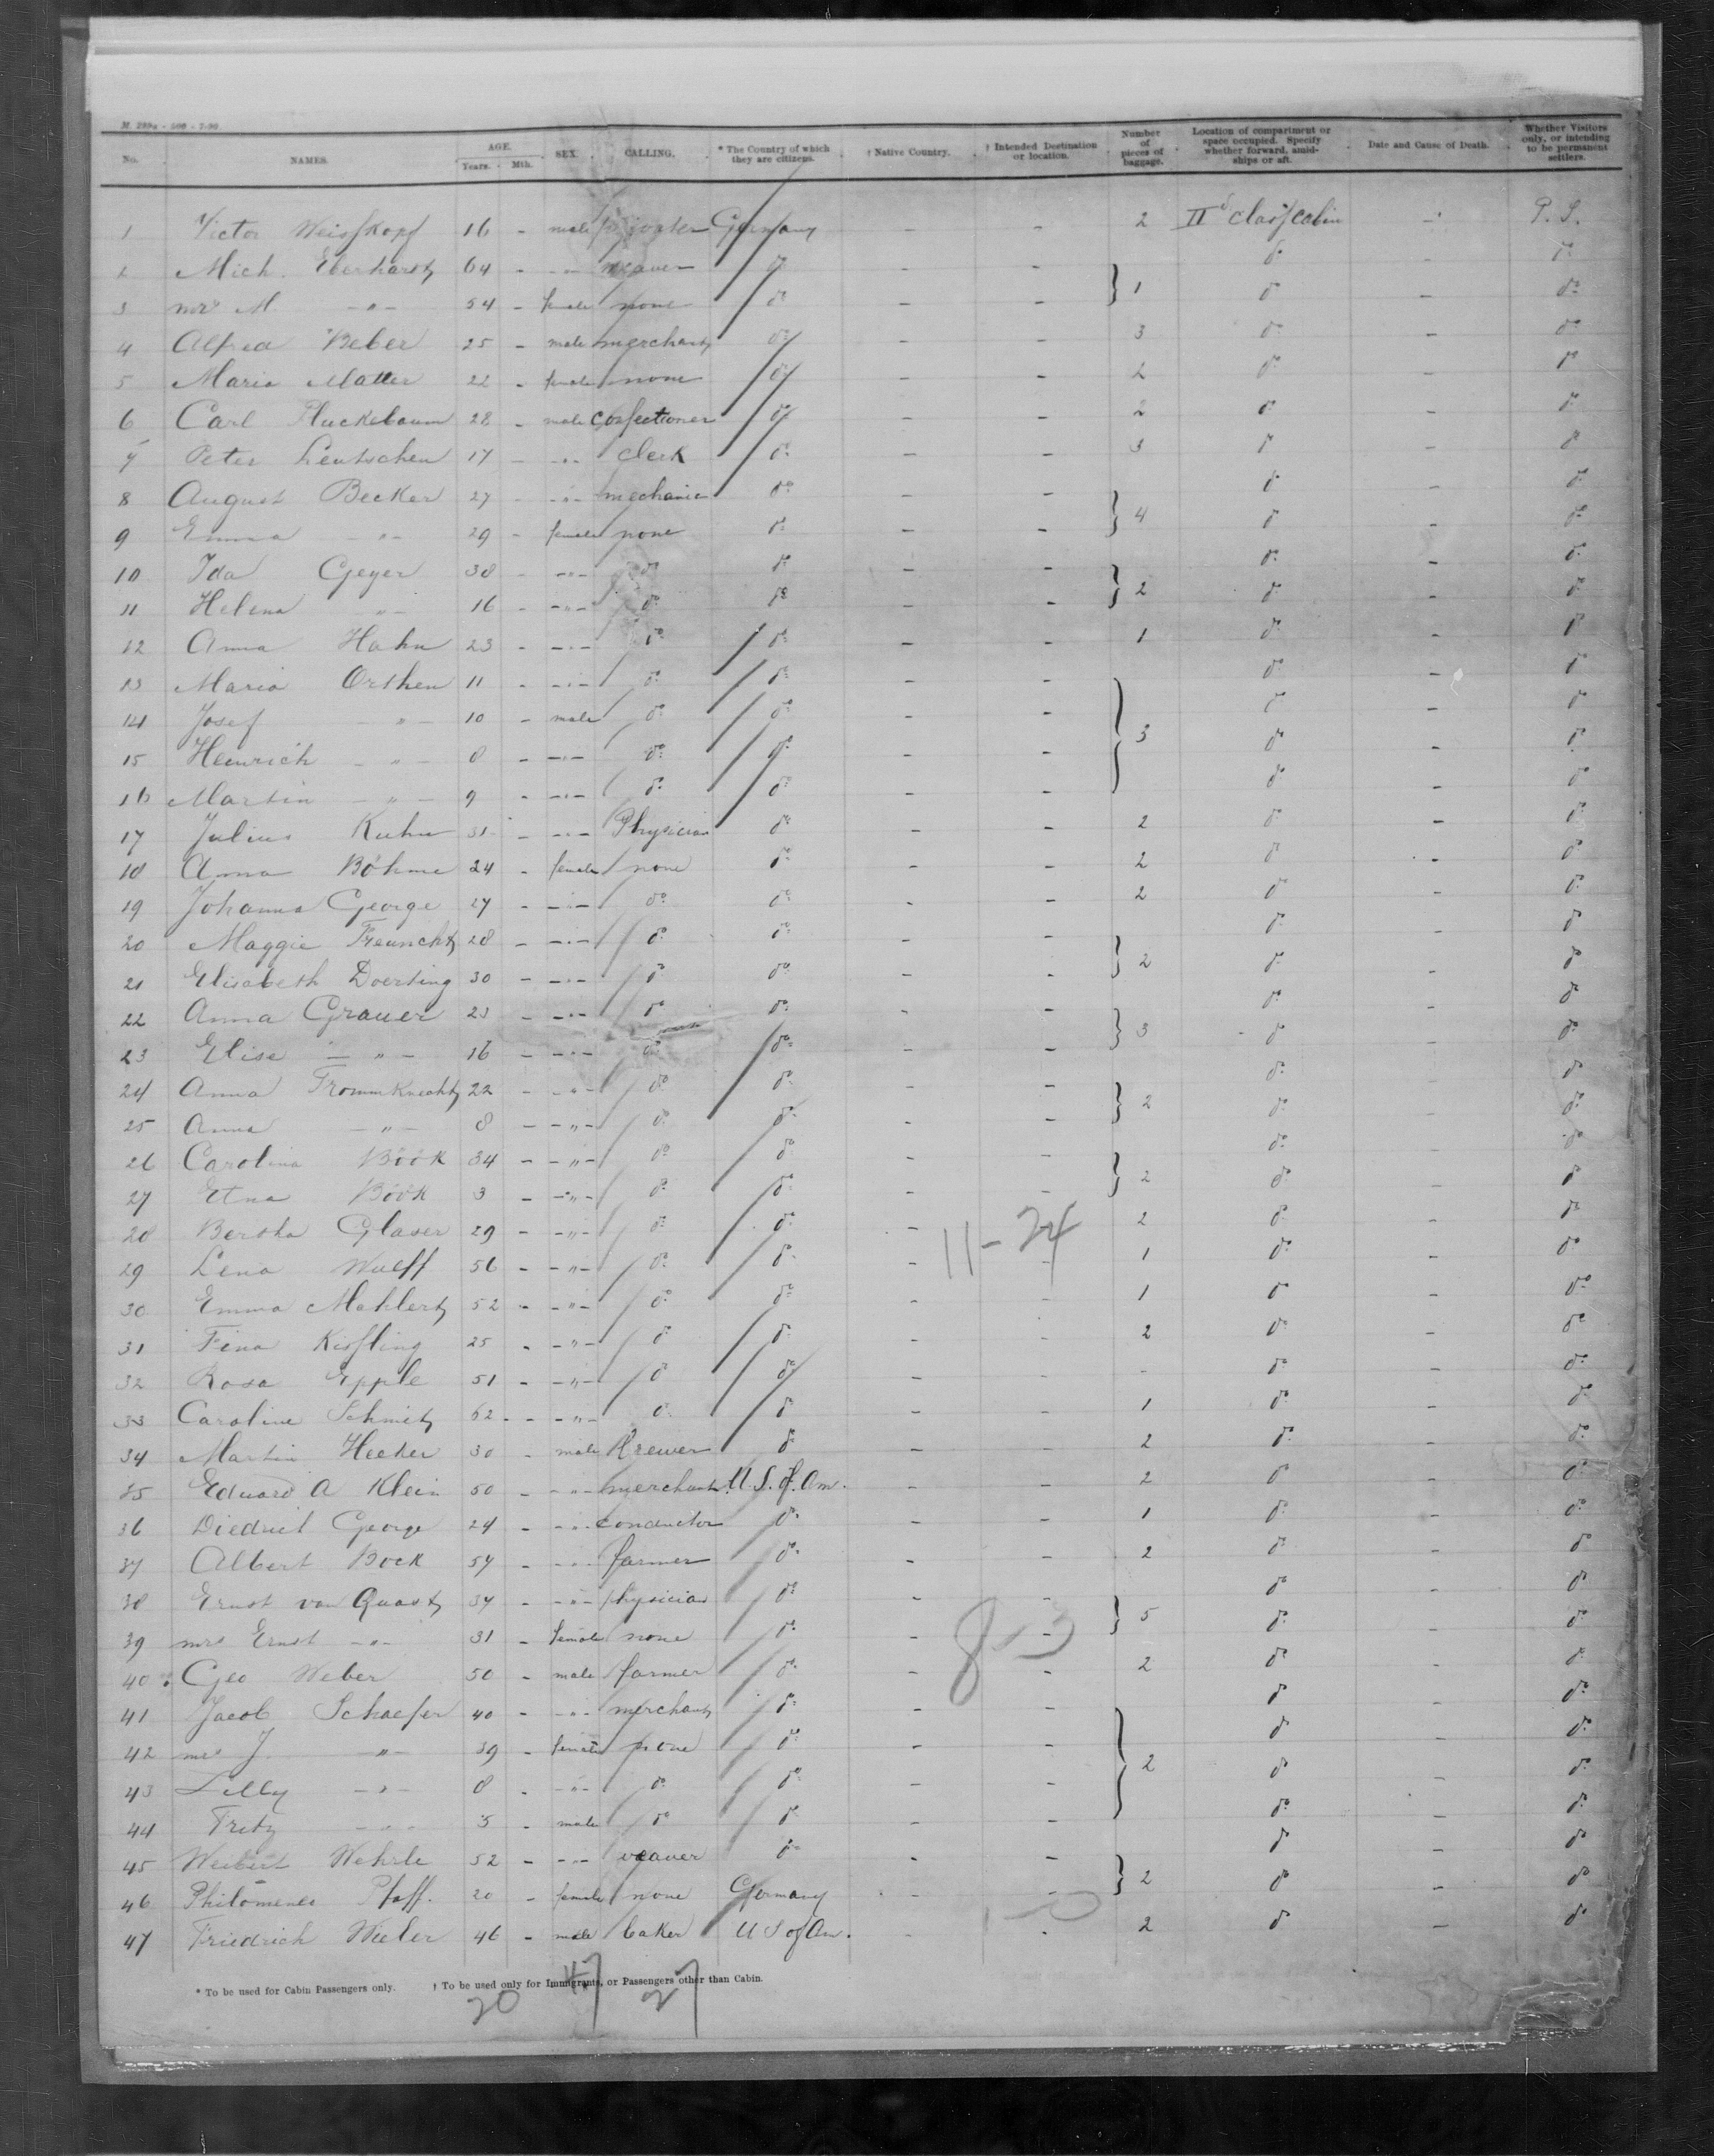 M. 299a - 500 - 7-90.
No. NAMES. AGE. Years. Mth. SEX. CALLING. * The Country of which they are citizens. † Native Country. † Intended Destination or location. Number of pieces of baggage. Location of compartment or space occupied. Specify whether forward, amidships or aft. Date and Cause of Death. Whether Visitors only, or intending to be permanent settlers.
1 Victor Weisskopf 16 - male Germany - - 2 IId class cabin - P. S.
2 Mich. Eberhardt 64 - -"- weaver do - - do - do
3 mrs M -"- 54 - female none do - - 1 do - do
4 Alfred Weber 25 - male merchant do - - 3 do - do
5 Maria Matter 22 - female none do - - 2 do - do
6 Carl Pluckebaum 28 - male confectioner do - - 2 do - do
7 Peter Leutschen 17 - -"- clerk do - - 3 do - do
8 August Becker 27 - -"- mechanic do - - do - do
9 Emma -"- 29 - female none do - - 4 do - do
10 Ida Geyer 38 - -"- do do - - do - do
11 Helena -"- 16 - -"- do do - - 2 do - do
12 Anna Hahn 23 - -"- do do - - 1 do - do
13 Maria Orthen 11 - -"- do do - - do - do
14 Josef -"- 10 - male do do - - do - do
15 Heinrich -"- 8 - -"- do do - - 3 do - do
16 Martin -"- 9 - -"- do do - - do - do
17 Julius Kuhn 31 - -"- Physician do - - 2 do - do
18 Anna Böhme 24 - female none do - - 2 do - do
19 Johanna George 27 - -"- do do - - 2 do - do
20 Maggie 28 - -"- do do - - do - do
21 Elisabeth Doerting 30 - -"- do do - - 2 do - do
22 Anna Grauer 23 - -"- do do - - do - do
23 Elise -"- 16 - -"- do do - - 3 do - do
24 Anna Frommknecht 22 - -"- do do - - do - do
25 Anna -"- 8 - -"- do do - - 2 do - do
26 Carolina Böök 34 - -"- do do - - do - do
27 Etna Böök 3 - -"- do do - - 2 do - do
28 Bertha Glaser 29 - -"- do do - - 2 do - do
11-24
29 Lena Wulff 56 - -"- do do - - 1 do - do
30 Emma Mahlert 52 - -"- do do - - 1 do - do
31 Fina Kissling 25 - -"- do do - - 2 do - do
32 Rosa Epple 51 - -"- do do - - - do - do
33 Caroline Schmitz 62 - -"- do do - - 1 do - do
34 Martin Hecker 30 - male Brewer do - - 2 do - do
35 Eduard A Klein 50 - -"- merchant U. S. of Am. - - 2 do - do
36 Diedrich George 24 - -"- conductor do - - 1 do - do
37 Albert Bock 57 - -"- farmer do - - 2 do - do
38 Ernst von Quast 37 - -"- physician do - - do - do
39 mrs Ernst -"- 31 - female none do - - 5 do - do
8-3
40 Geo Weber 50 - male farmer do - - 2 do - do
41 Jacob Schaefer 40 - -"- merchant do - - do - do
42 mrs J. -"- 39 - female none do - - do - do
43 Lilly -"- 8 - -"- do do - - 2 do - do
44 Fritz -"- 5 - male do do - - do - do
45 Wehrle 52 - -"- weaver do - - do - do
46 Philomenes Pfaff. 20 - female none Germany - - 2 do - do
47 Friedrich 46 - male baker U S of Am. - - 2 do - do
1-0
* To be used for Cabin Passengers only. † To be used only for Immigrants, or Passengers other than Cabin.
20 47 27